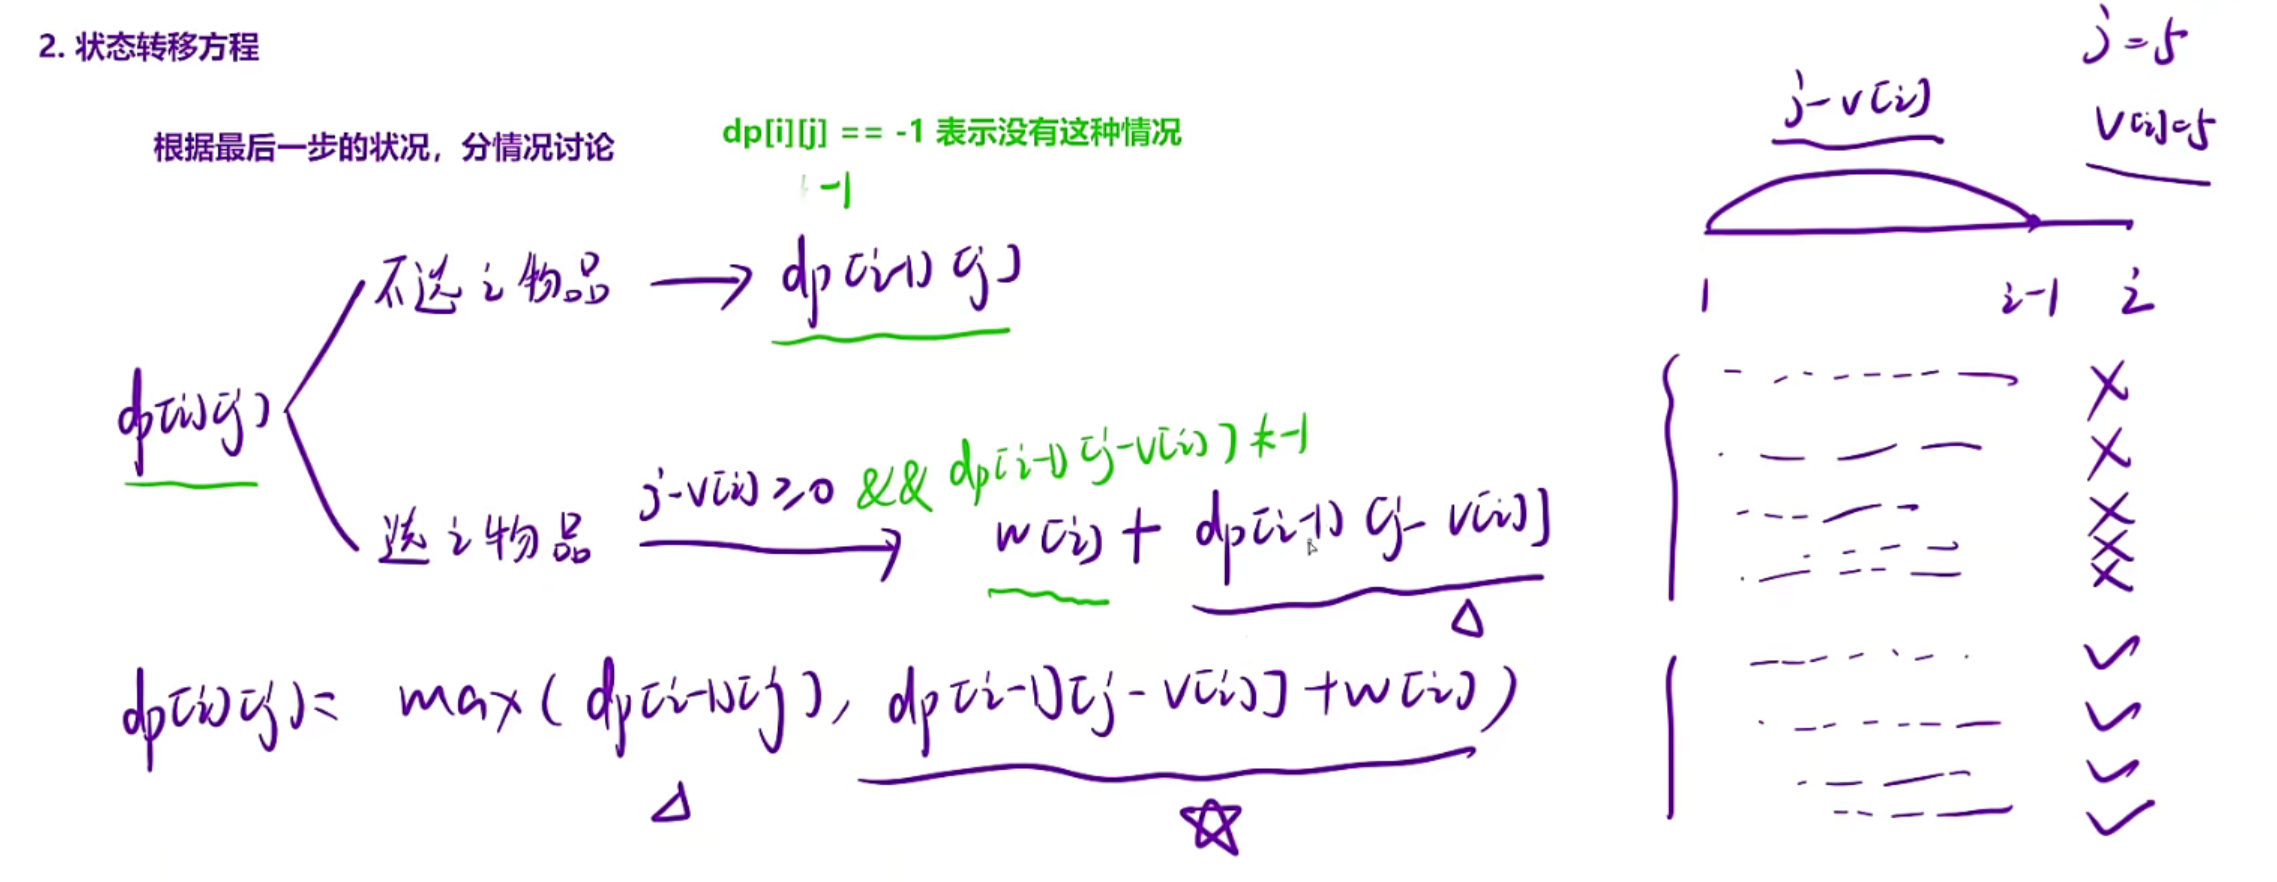 2. 状态转移方程
j=5
j-v[i]
v[i]=5
根据最后一步的状况，分情况讨论
dp[i][j] == -1 表示没有这种情况
-1
不选i物品 → dp[i-1][j]
1 i-1 i
dp[i][j]
j-v[i]≥0 && dp[i-1][j-v[i]]≠-1
选i物品 → w[i] + dp[i-1][j-v[i]]
dp[i][j]= max(dp[i-1][j], dp[i-1][j-v[i]]+w[i])